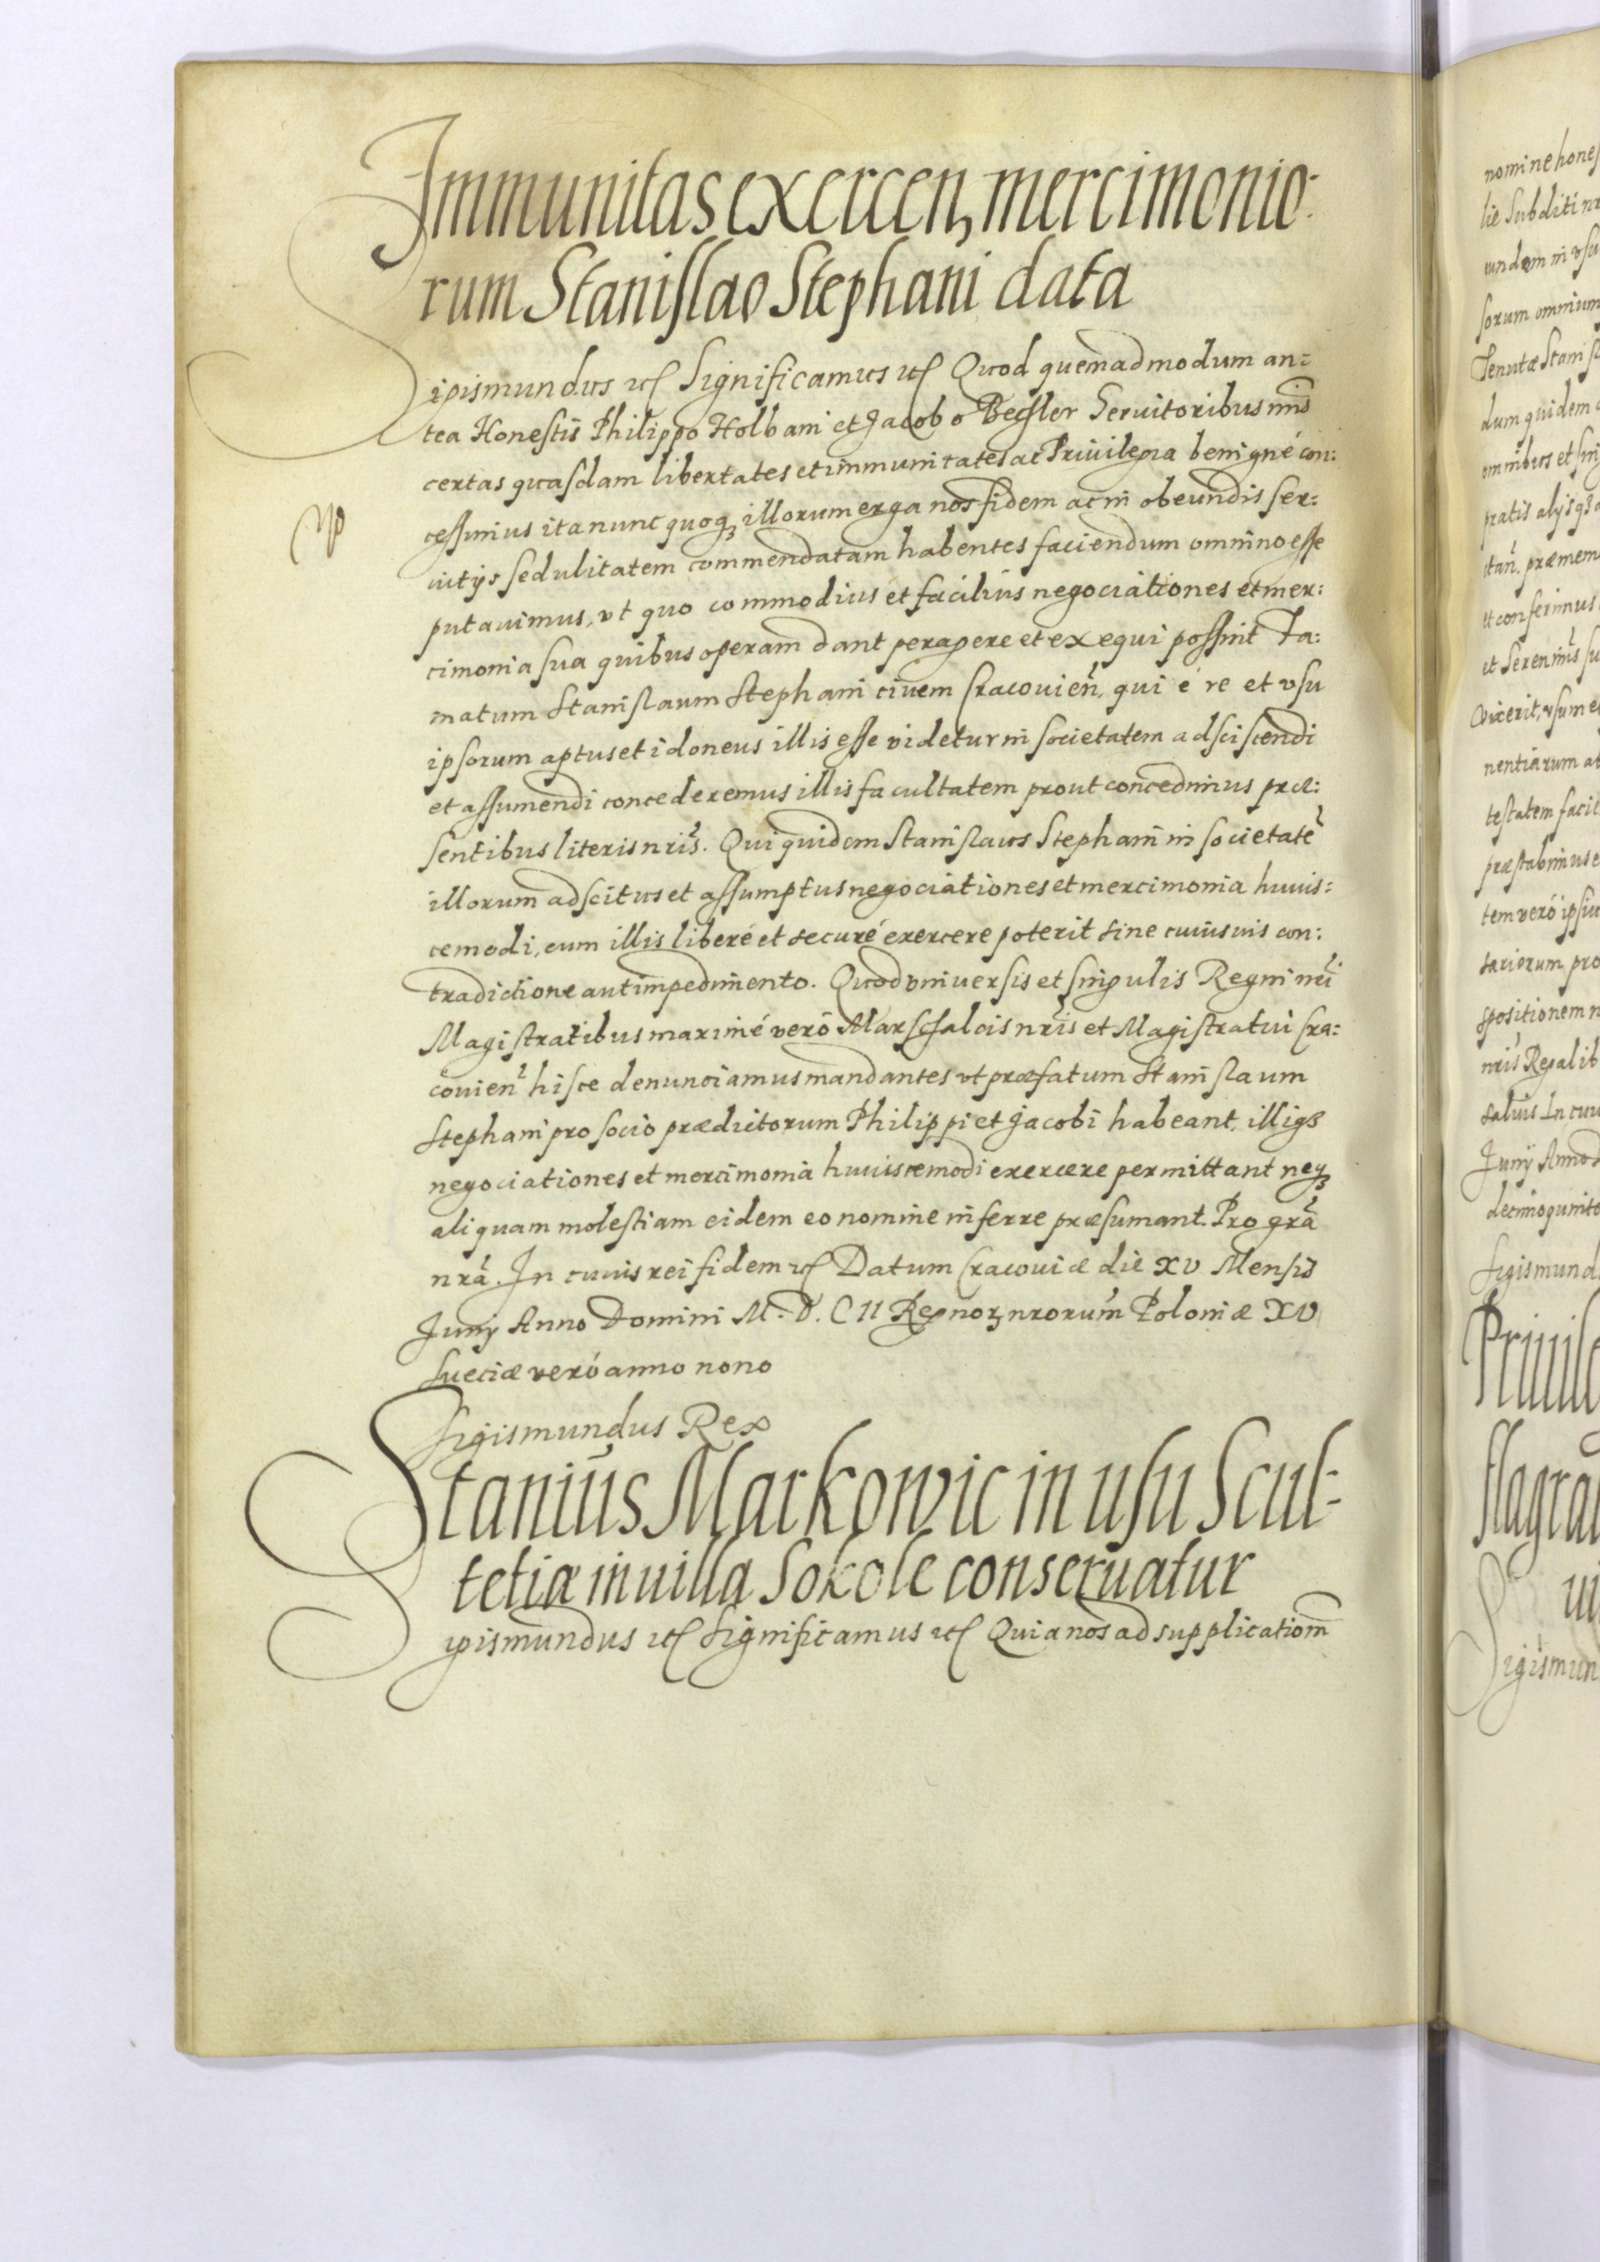 Immunitas exercen, mercimonio-
rum Stanislao Stephani data
Sigismundus etc Significamus etc Quod quemadmodum an=
tea Honestis Philippo Holbani et Jacobo Begler Seruitoribus nris
certas quasdam libertates et immunitates ac Priuilegia benigné con:
cessimus ita nunc quoq₃ illorum erga nos fidem ac in obeundis ser:
uitijs sedulitatem commendatam habentes faciendum omnino esse
putauimus, vt quo commodius et facilius negociationes et mer:
cimonia sua quibus operam dant peragere et exequi possint Fa:
matum Stanislaum Stephani ciuem Cracouien, qui é re et vsu
ipsorum aptus et idoneus illis esse videtur in societatem adsciscendi
et assumendi concederemus illis facultatem prout concedimus præ:
sentibus literis nris. Qui quidem Stanislaus Stephani in societatē
illorum adscitus et assumptus negociationes et mercimonia huius=
cemodi, cum illis liberé et securé exercere poterit sine cuiusuis con:
tradictione aut impedimento. Quod vniuersis et singulis Regni nri
Magistratibus maximé veró Marschalcis nris et Magistratui Cra:
couien hisce denunciamus mandantes vt præfatum Stanislaum
Stephani pro socio prædictorum Philippi et Jacobi habeant, illiq₃
negociationes et mercimonia huiuscemodi exercere permittant neq₃
aliquam molestiam eidem eo nomine inferre præsumant. Pro gra
nra. In cuius rei fidem etc Datum Cracouiæ die XV Mensis
Juny Anno Domini M. D. C II Regnor₃ nrorum Poloniæ XV
Sueciæ veró anno nono
Sigismundus Rex
Stanius Markowic in usu Scul-
tetiæ in uilla Sokole conseruatur
Sigismundus etc Significamus etc Quia nos ad supplicationm
nomine hones
sorum omnium
dum quidem
omnibus et sin
et conferimus
nentiarum at
testatem facil
præstabimus e
tem veró ipsiu
spositionem n
nris Regalib
saluis In cuiu
Juny Anno D
decimoquinto
Sigismund
Priuile
flagra
ui
Sigismun